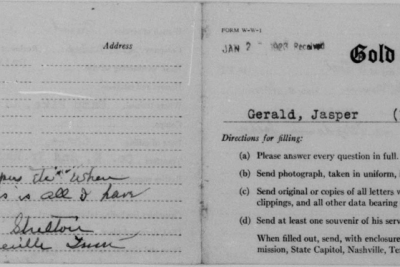 Address
when
s is all I have
Shelton
ville Tenn
FORM W-W-1
JAN 2 1923 Received
Gold
Gerald, Jasper (
Directions for filling:
(a) Please answer every question in full.
(b) Send photograph, taken in uniform, i
(c) Send original or copies of all letters w
clippings, and all other data bearing
(d) Send at least one souvenir of his serv
When filled out, send, with enclosure
mission, State Capitol, Nashville, Te